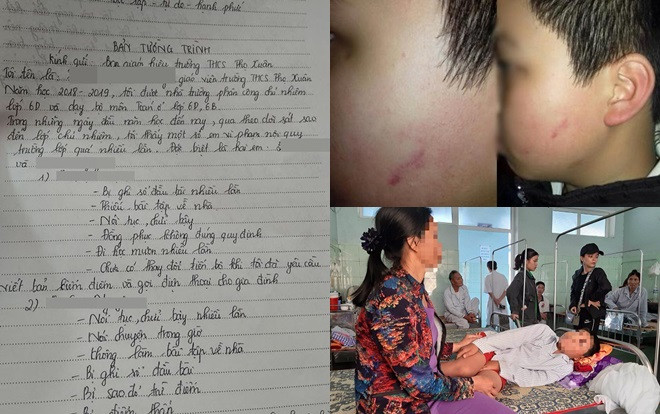 lập - tự do - hạnh phúc
BẢN TƯỜNG TRÌNH
Kính gửi: ban giám hiệu trường THCS Phọ Xuân
Tôi tên là: giáo viên trường THCS Phọ Xuân
Năm học 2018 - 2019, tôi được nhà trường phân công chủ nhiệm
lớp 6D và dạy bộ môn Toán ở lớp 6D, 6B.
Trong những ngày đầu năm học đến nay, qua theo dõi sát sao
đến lớp chủ nhiệm, tôi thấy một số em vi phạm nội quy
trường lớp quá nhiều lần. Đặc biệt là hai em:
và
1)
- Bị ghi sổ đầu bài nhiều lần
- Thiếu bài tập về nhà
- Nói tục, chửi bậy
- Đồng phục không đúng quy định
- Đi học muộn nhiều lần
- Chưa có thay đổi tiến bộ khi tôi đã yêu cầu
viết bản kiểm điểm và gọi điện thoại cho gia đình
2)
- Nói tục, chửi bậy nhiều lần
- Nói chuyện trong giờ
- Không làm bài tập về nhà
- Bị ghi sổ đầu bài
- Bị sao đỏ trừ điểm
- Bị điểm thấp